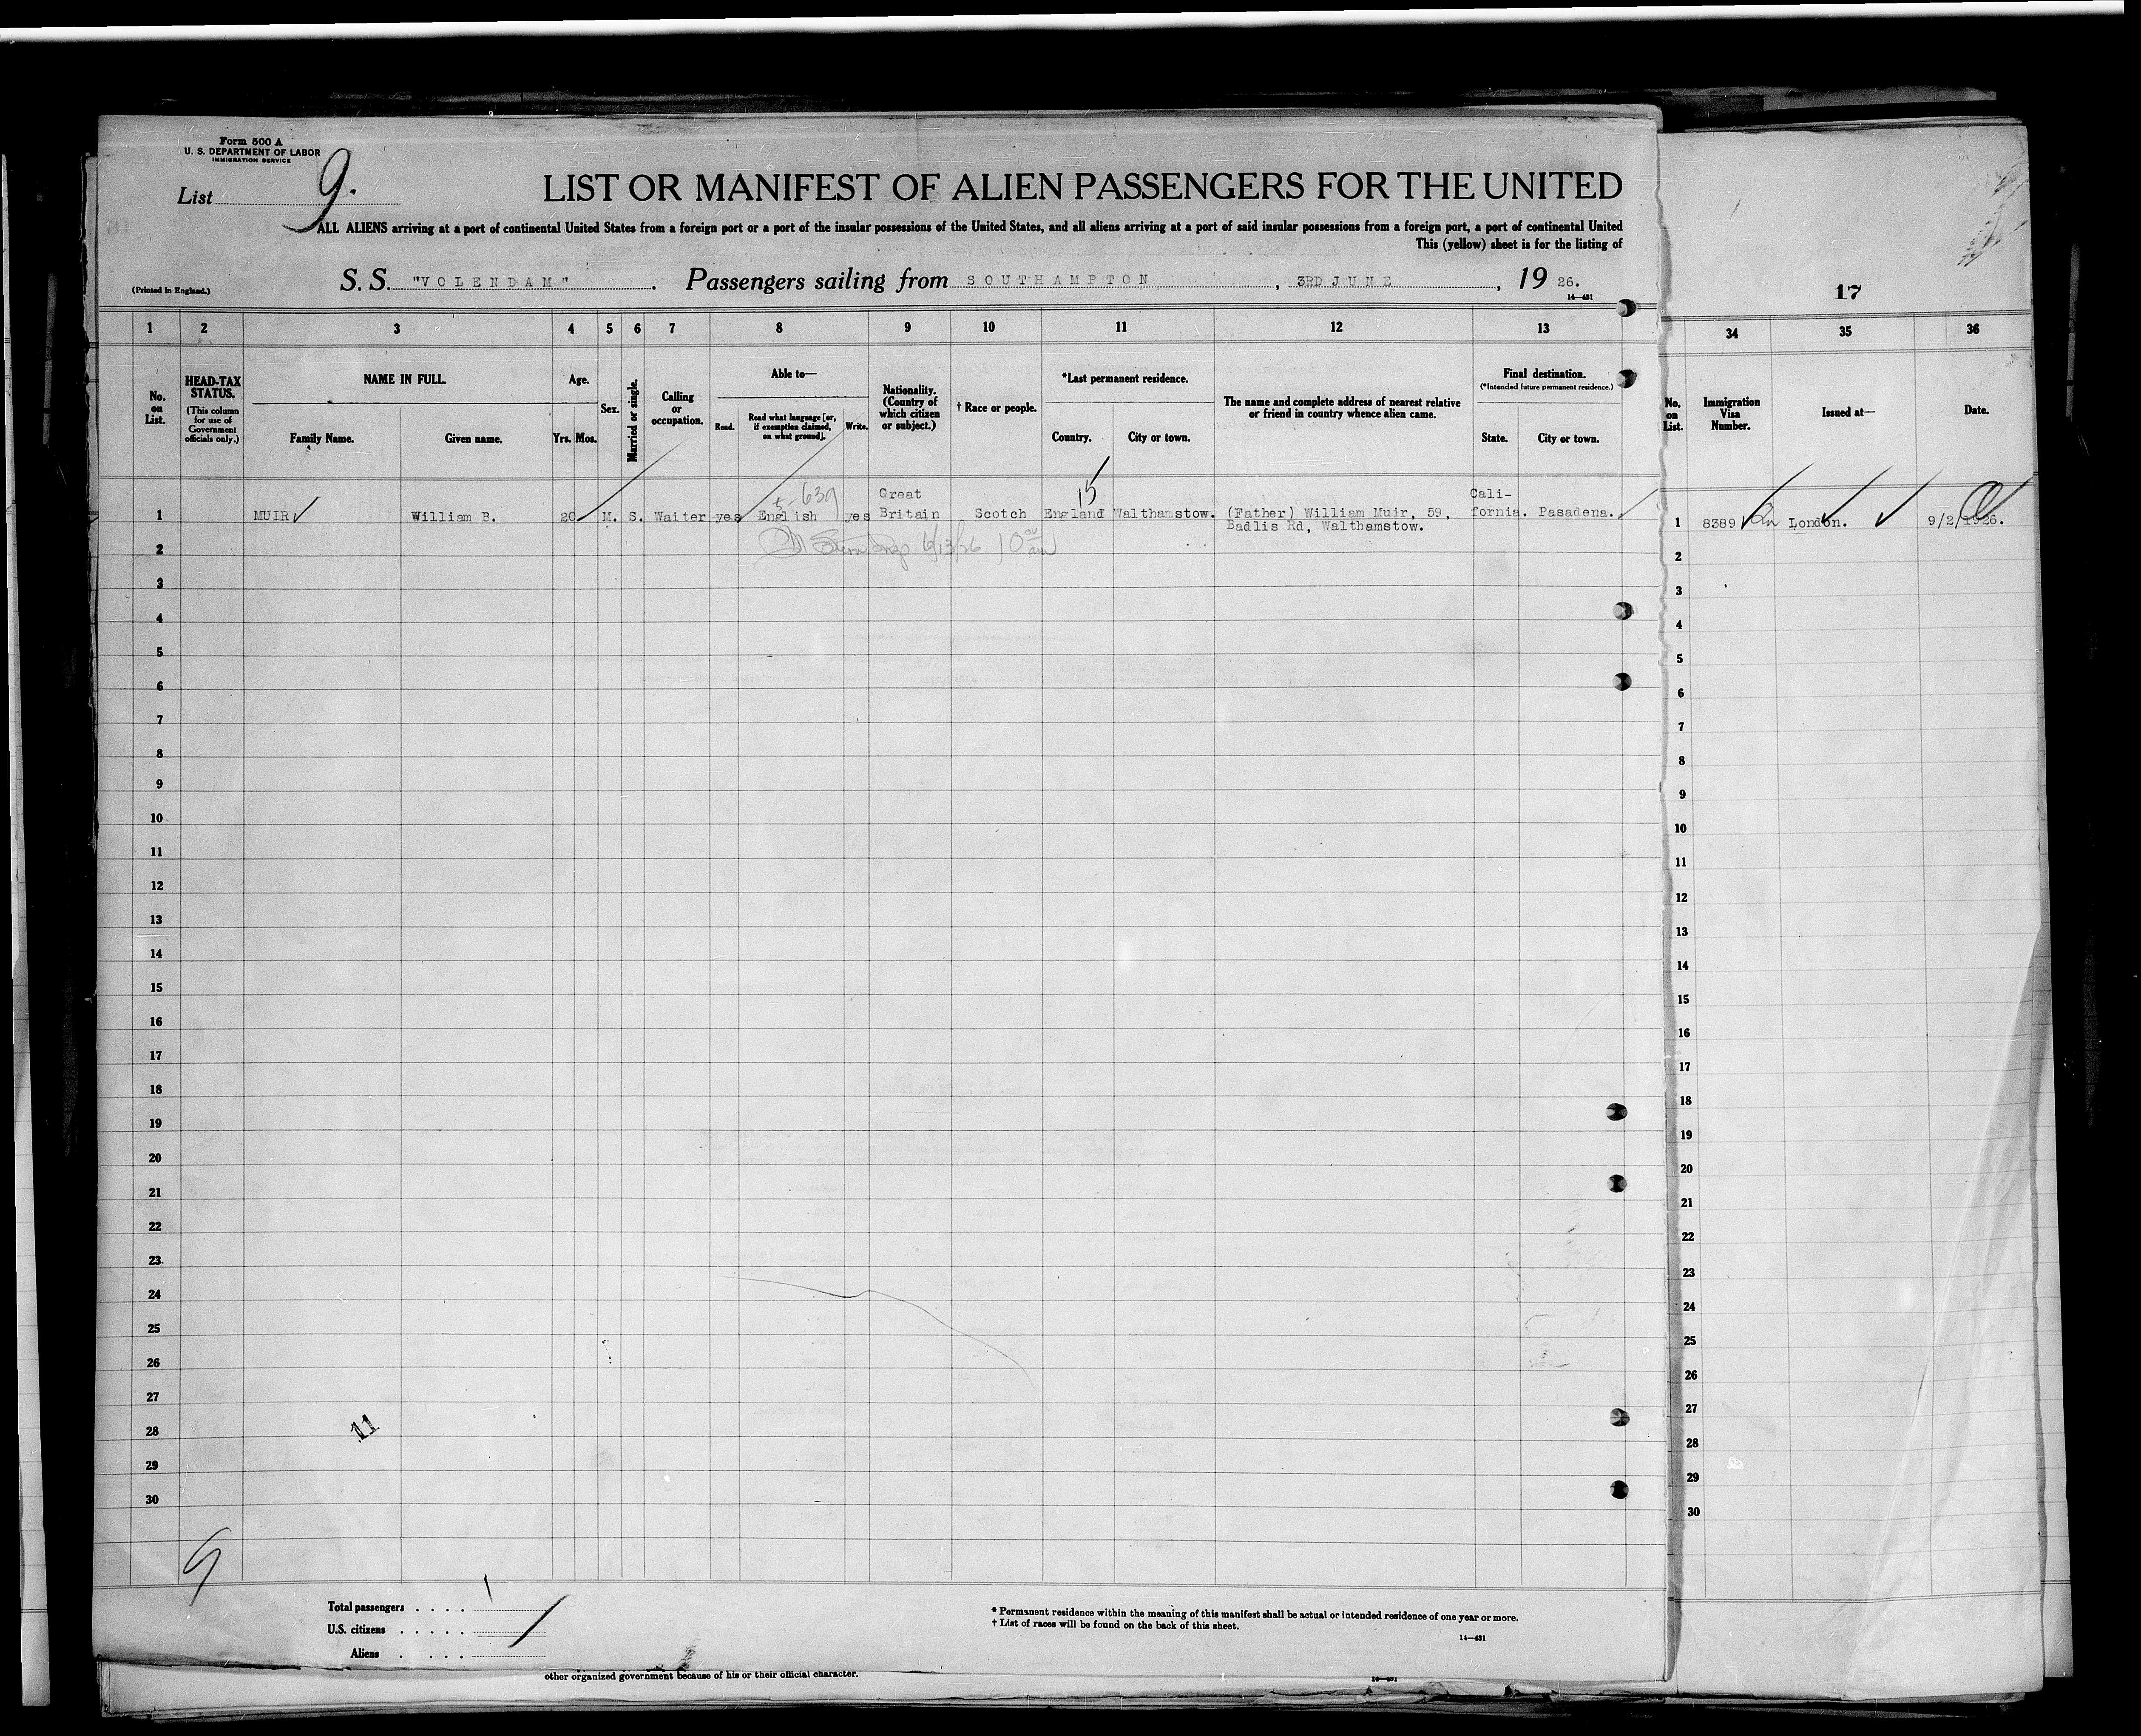 Form 500 A
U. S. DEPARTMENT OF LABOR
IMMIGRATION SERVICE
List 9.
LIST OR MANIFEST OF ALIEN PASSENGERS FOR THE UNITED
ALL ALIENS arriving at a port of continental United States from a foreign port or a port of the insular possessions of the United States, and all aliens arriving at a port of said insular possessions from a foreign port, a port of continental United
This (yellow) sheet is for the listing of
(Printed in England.)
S. S. "VOLENDAM" . Passengers sailing from SOUTHAMPTON , 3RD JUNE , 19 26.
14—431
17
1 2 3 4 5 6 7 8 9 10 11 12 13
34 35 36
No. on List.
HEAD-TAX STATUS.
(This column for use of Government officials only.)
NAME IN FULL.
Family Name. Given name.
Age.
Yrs. Mos.
Sex.
Married or single.
Calling or occupation.
Able to—
Read. Read what language [or, if exemption claimed, on what ground]. Write.
Nationality. (Country of which citizen or subject.)
† Race or people.
*Last permanent residence.
Country. City or town.
The name and complete address of nearest relative or friend in country whence alien came.
Final destination.
(*Intended future permanent residence.)
State. City or town.
No. on List.
Immigration Visa Number.
Issued at—
Date.
5-639
15
Great Cali-
1 MUIR William B. 20 M. S. Waiter yes English yes Britain Scotch England Walthamstow. (Father) William Muir, 59, fornia. Pasadena.
Badlis Rd, Walthamstow.
1 8389 London. 9/2/1926.
6/13/26 10
2
3
4
5
6
7
8
9
10
11
12
13
14
15
16
17
18
19
20
21
22
23
24
25
26
27
28
29
30
2
3
4
5
6
7
8
9
10
11
12
13
14
15
16
17
18
19
20
21
22
23
24
25
26
27
28
29
30
11
9
Total passengers . . . . 1
U.S. citizens . . . . .
Aliens . . . .
* Permanent residence within the meaning of this manifest shall be actual or intended residence of one year or more.
† List of races will be found on the back of this sheet.
14—431
other organized government because of his or their official character.